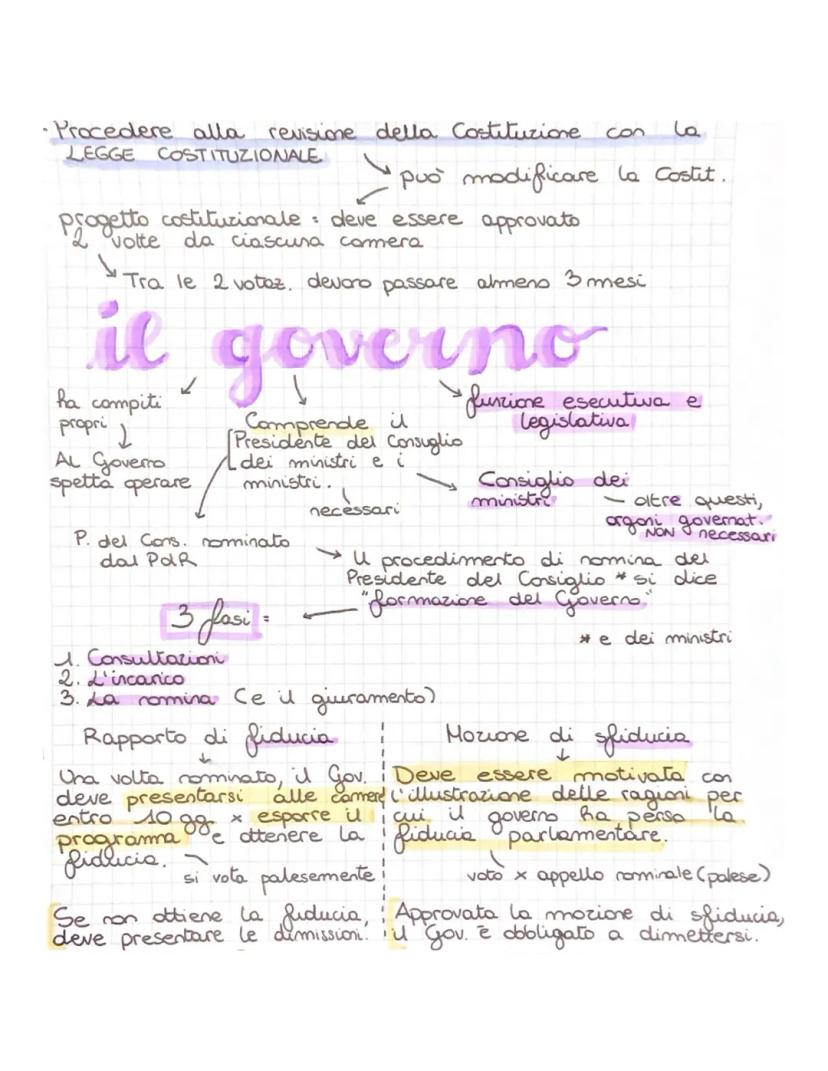 · Procedere alla revisione della Costituzione con la
LEGGE COSTITUZIONALE
può modificare la Costit.
progetto costituzionale = deve essere approvato
2 volte da ciascuna camera
Tra le 2 votaz. devono passare almeno 3 mesi
il governo
ha compiti
propri
Al Governo
spetta operare
Comprende il
Presidente del Consiglio
dei ministri e i
ministri.
necessari
funzione esecutiva e
legislativa
Consiglio dei
ministri
oltre questi,
organi governat.
NON necessari
P. del Cons. nominato
dal PdR
Il procedimento di nomina del
Presidente del Consiglio * si dice
"formazione del Governo"
* e dei ministri
3 fasi =
1. Consultazioni
2. L'incarico
3. La nomina (e il giuramento)
Rapporto di fiducia
Una volta nominato, il Gov.
deve presentarsi alle camere
entro 10 gg. x esporre il
programma e ottenere la
fiducia.
si vota palesemente
Se non ottiene la fiducia,
deve presentare le dimissioni.
Mozione di sfiducia
Deve essere motivata con
l'illustrazione delle ragioni per
cui il governo ha perso la
fiducia parlamentare.
voto x appello nominale (palese)
Approvata la mozione di sfiducia,
il Gov. è obbligato a dimettersi.